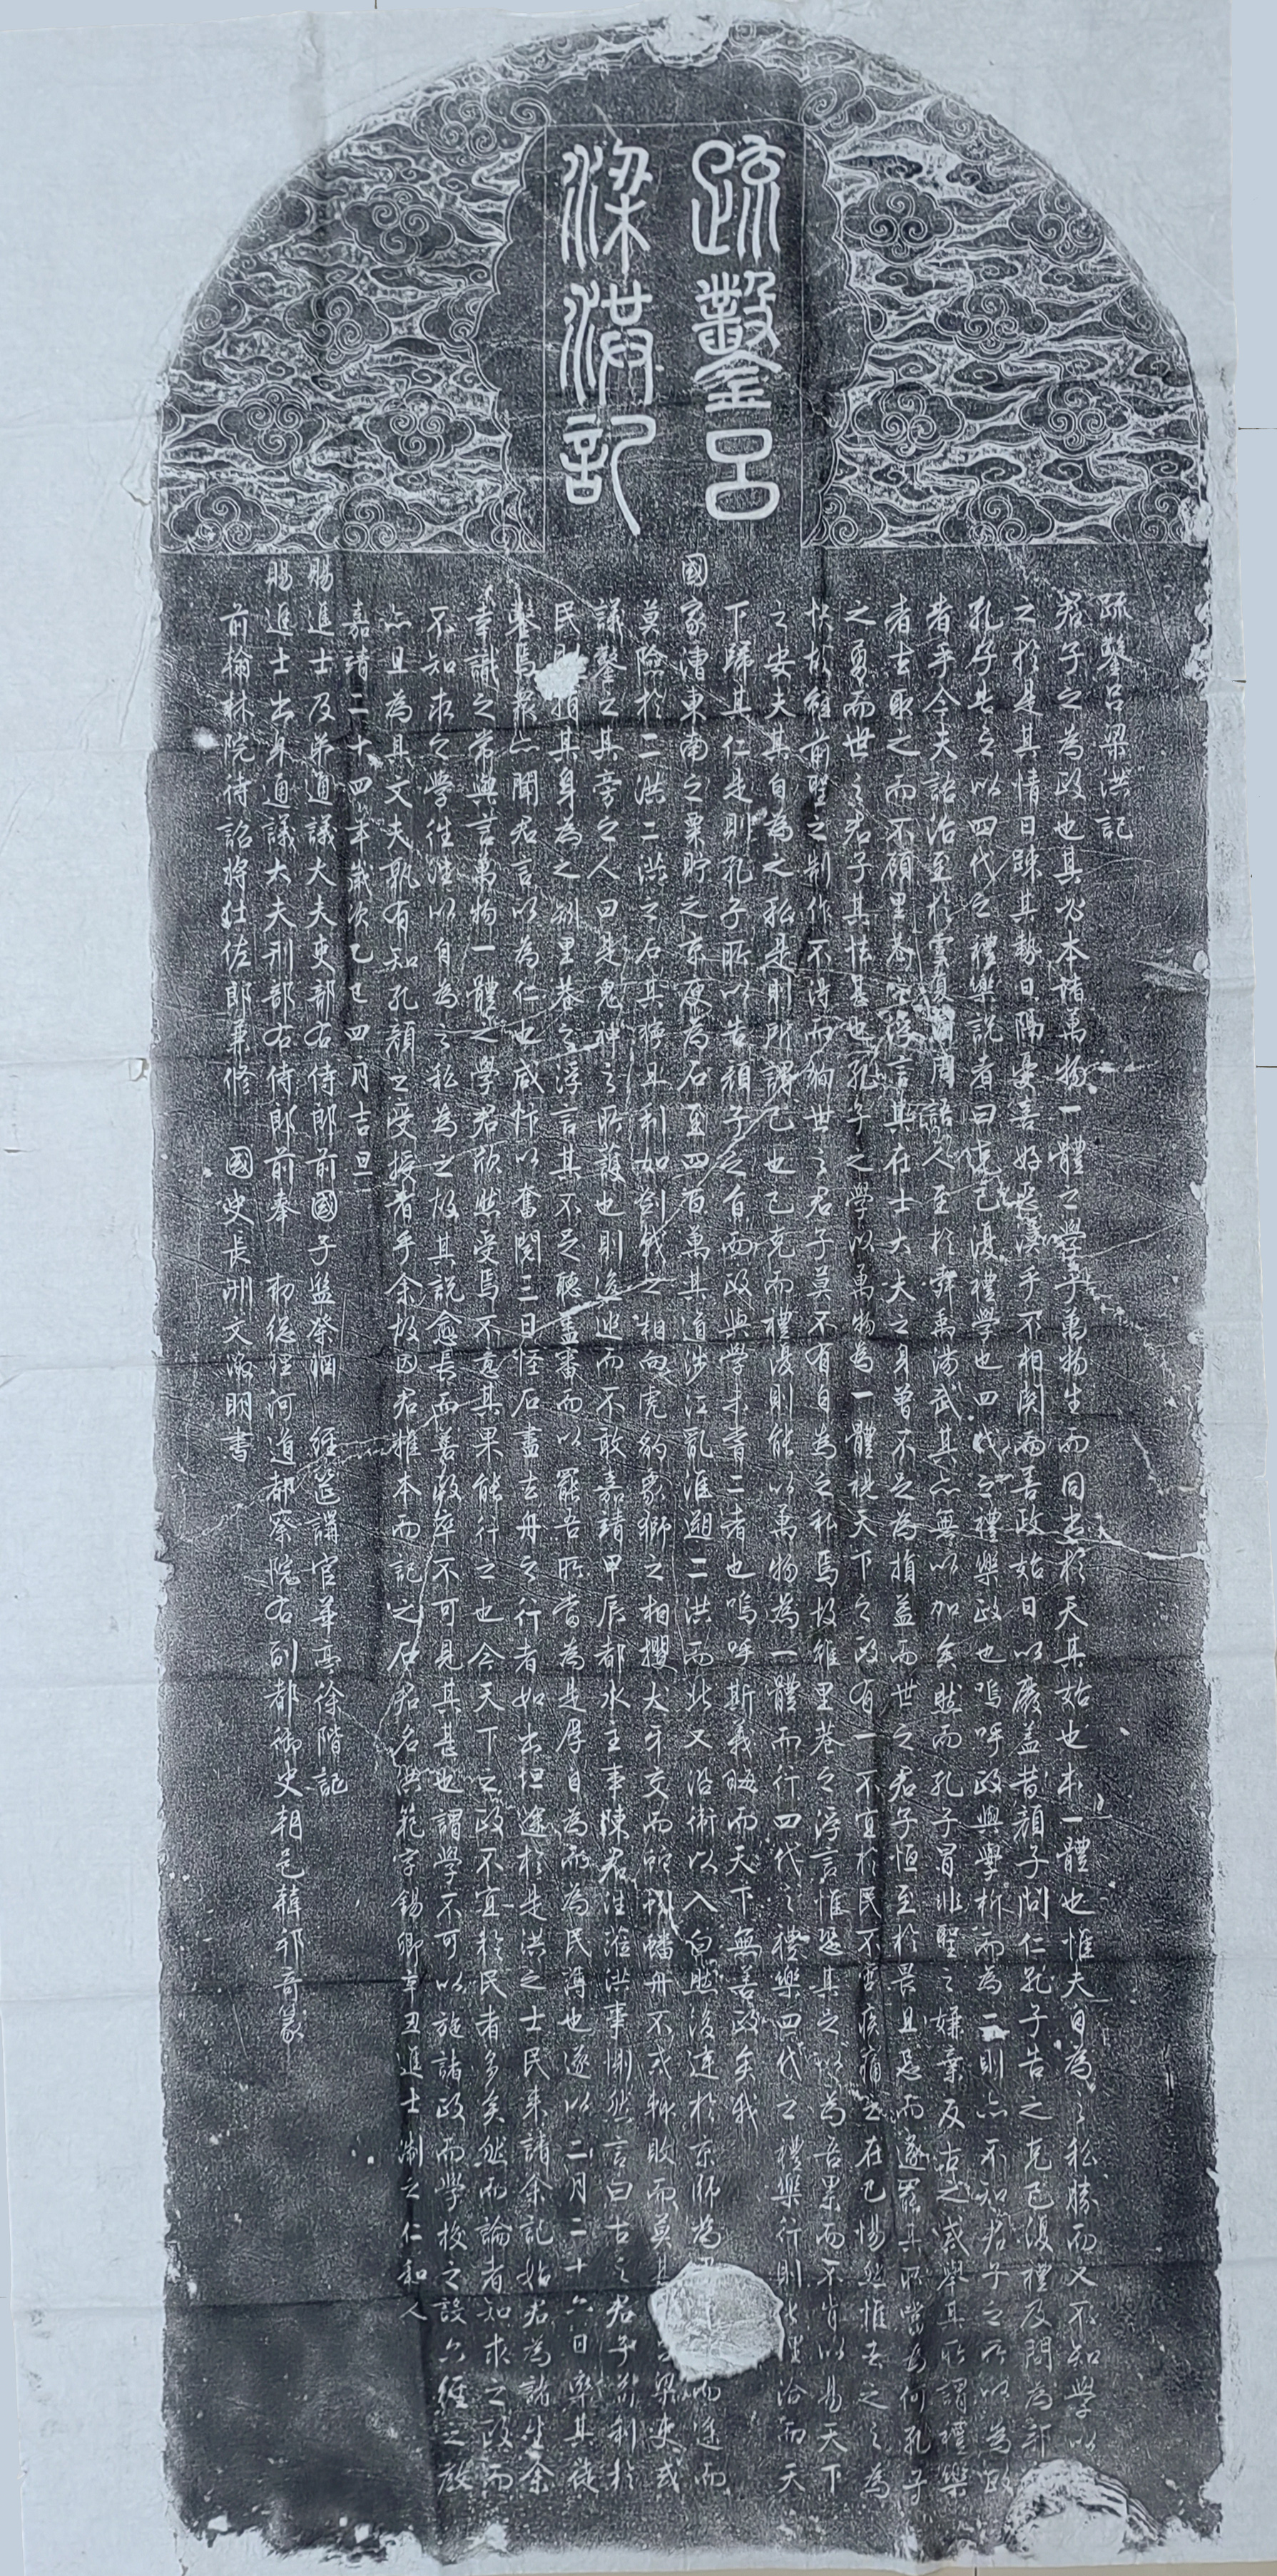 疏鑿呂
梁洪記
疏鑿呂梁洪記
君子之為政也其必本諸萬物一體之學乎萬物生而同出於天其始也本一體也惟夫自為之私勝而又不知學以
之於是其情日踈其勢日隔憂喜好惡漠乎不相關而善政始日以廢蓋昔顏子問仁孔子告之克己復禮及問為邦
孔子告之以四代之禮樂說者曰克己復禮學也四代之禮樂政也嗚呼政與學析而為二則亦不知君子之所以為政
者乎今夫語治至於虞夏商周語人至於舜禹湯武其亦無以加矣然而孔子冒非聖之嫌棄反古之戒舉其所謂禮樂
者去取之而不顧里巷之浮言其在士大夫之身曾不足為損益而世之君子恒至於畏且忌而遂罷其所當為何孔子
之勇而世之君子其怯甚也孔子之學以萬物為一體視天下之政有一不宜於民不啻疾痛之在己惕然惟去之之為
快故雖前聖之制作不得而徇世之君子莫不有自為之私焉故雖里巷之浮言惟恐其之以為吾累而不肯以易天下
之安夫其自為之私是則所謂己也己克而禮復則能以萬物為一體而行四代之禮樂四代之禮樂行則化理洽而天
下歸其仁是則孔子所以告顏子之旨而政與學未嘗二者也嗚呼斯義晦而天下無善政矣我
國家漕東南之粟貯之京庾為石至四百萬其道涉江亂淮遡二洪而北又沿衛以入白然後達於京師為 而途而
莫險於二洪二洪之石其獰且利如劍戟之相向虎豹象獅之相攫犬牙交而蛇蚓蟠舟不戒輒敗而莫甚 梁吏或
議鑿之其旁之人曰是鬼神之所護也則逡巡而不敢嘉靖甲辰都水主事陳君往蒞洪事惻然言曰古之君子苟利於
民則捐其身為之矧里巷之浮言其不足聽蓋審而以罷吾所當為是厚自為而為民薄也遂以二月二十六日率其徒
鑿焉眾亦聞君言以為仁也咸忭以奮閱三日怪石盡去舟之行者如出坦途於是洪之士民來請余記始君為諸生余
幸識之嘗與言萬物一體之學君欣然受焉不意其果能行之也今天下之政不宜於民者多矣然而論者知求之政而
不知求之學往往以自為之私為之故其說愈長而善政卒不可見其甚也謂學不可以施諸政而學校之設六經之教
亦且為具文夫孰有知孔顏之受授者乎余故因君推本而記之石君名洪範字錫卿辛丑進士浙之仁和人
嘉靖二十四年歲次乙巳四月吉旦
賜進士及第通議大夫吏部右侍郎前國子監祭酒 經筵講官華亭徐階記
賜進士出身通議大夫刑部右侍郎前奉 勅總理河道都察院右副都御史朝邑韓邦奇篆
前翰林院待詔將仕佐郎兼修 國史長洲文徵明書